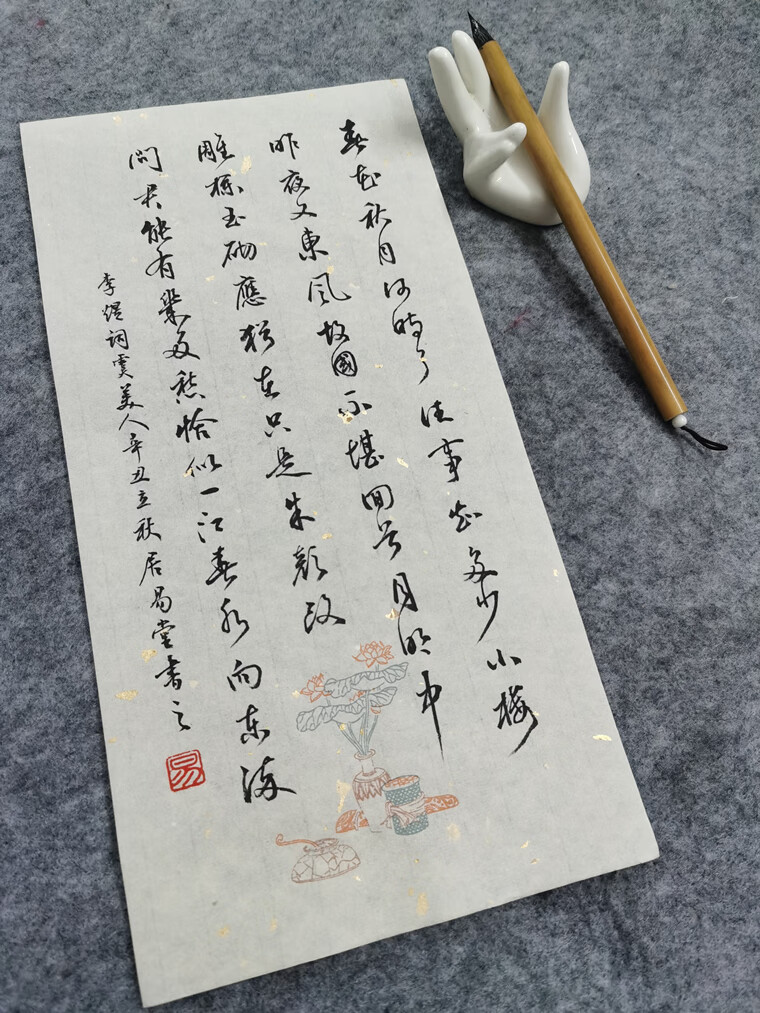 春花秋月何時了往事知多少小樓
昨夜又東風故國不堪回首月明中
雕栏玉砌應猶在只是朱顏改
問君能有幾多愁恰似一江春水向东流
李煜詞虞美人辛丑立秋居易堂書之
易